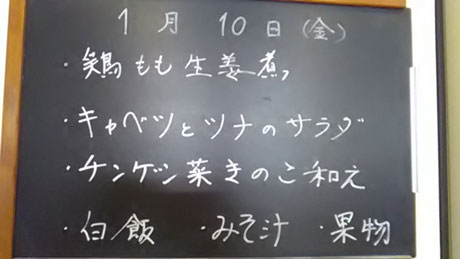 1月10日(金)
・鶏もも生姜煮
・キャベツとツナのサラダ
・チンゲン菜きのこ和え
・白飯 ・みそ汁 ・果物